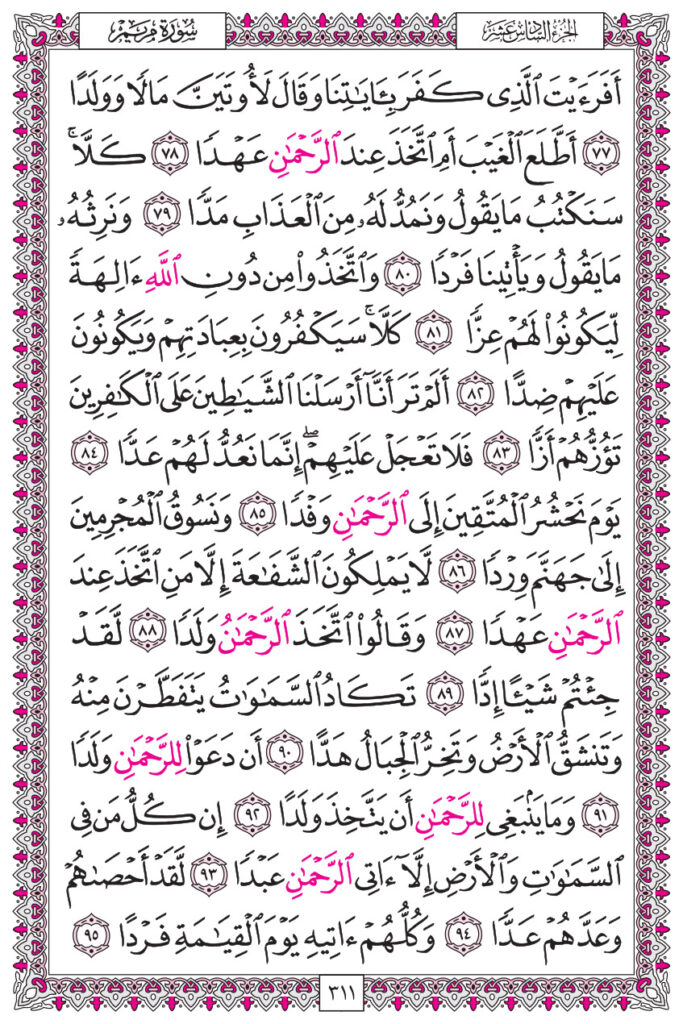 سُورَةُ مَرْيَمَ
الجُزْءُ السَّادِسَ عَشَرَ
أَفَرَءَيْتَ ٱلَّذِى كَفَرَ بِـَٔايَـٰتِنَا وَقَالَ لَأُوتَيَنَّ مَالًا وَوَلَدًا
٧٧ أَطَّلَعَ ٱلْغَيْبَ أَمِ ٱتَّخَذَ عِندَ ٱلرَّحْمَـٰنِ عَهْدًا ٧٨ كَلَّا ۚ
سَنَكْتُبُ مَا يَقُولُ وَنَمُدُّ لَهُۥ مِنَ ٱلْعَذَابِ مَدًّا ٧٩ وَنَرِثُهُۥ
مَا يَقُولُ وَيَأْتِينَا فَرْدًا ٨٠ وَٱتَّخَذُوا۟ مِن دُونِ ٱللَّهِ ءَالِهَةً
لِّيَكُونُوا۟ لَهُمْ عِزًّا ٨١ كَلَّا ۚ سَيَكْفُرُونَ بِعِبَادَتِهِمْ وَيَكُونُونَ
عَلَيْهِمْ ضِدًّا ٨٢ أَلَمْ تَرَ أَنَّآ أَرْسَلْنَا ٱلشَّيَـٰطِينَ عَلَى ٱلْكَـٰفِرِينَ
تَؤُزُّهُمْ أَزًّا ٨٣ فَلَا تَعْجَلْ عَلَيْهِمْ ۖ إِنَّمَا نَعُدُّ لَهُمْ عَدًّا ٨٤
يَوْمَ نَحْشُرُ ٱلْمُتَّقِينَ إِلَى ٱلرَّحْمَـٰنِ وَفْدًا ٨٥ وَنَسُوقُ ٱلْمُجْرِمِينَ
إِلَىٰ جَهَنَّمَ وِرْدًا ٨٦ لَّا يَمْلِكُونَ ٱلشَّفَـٰعَةَ إِلَّا مَنِ ٱتَّخَذَ عِندَ
ٱلرَّحْمَـٰنِ عَهْدًا ٨٧ وَقَالُوا۟ ٱتَّخَذَ ٱلرَّحْمَـٰنُ وَلَدًا ٨٨ لَّقَدْ
جِئْتُمْ شَيْـًٔا إِدًّا ٨٩ تَكَادُ ٱلسَّمَـٰوَٰتُ يَتَفَطَّرْنَ مِنْهُ
وَتَنشَقُّ ٱلْأَرْضُ وَتَخِرُّ ٱلْجِبَالُ هَدًّا ٩٠ أَن دَعَوْا۟ لِلرَّحْمَـٰنِ وَلَدًا
٩١ وَمَا يَنۢبَغِى لِلرَّحْمَـٰنِ أَن يَتَّخِذَ وَلَدًا ٩٢ إِن كُلُّ مَن فِى
ٱلسَّمَـٰوَٰتِ وَٱلْأَرْضِ إِلَّآ ءَاتِى ٱلرَّحْمَـٰنِ عَبْدًا ٩٣ لَّقَدْ أَحْصَىٰهُمْ
وَعَدَّهُمْ عَدًّا ٩٤ وَكُلُّهُمْ ءَاتِيهِ يَوْمَ ٱلْقِيَـٰمَةِ فَرْدًا ٩٥
٣١١